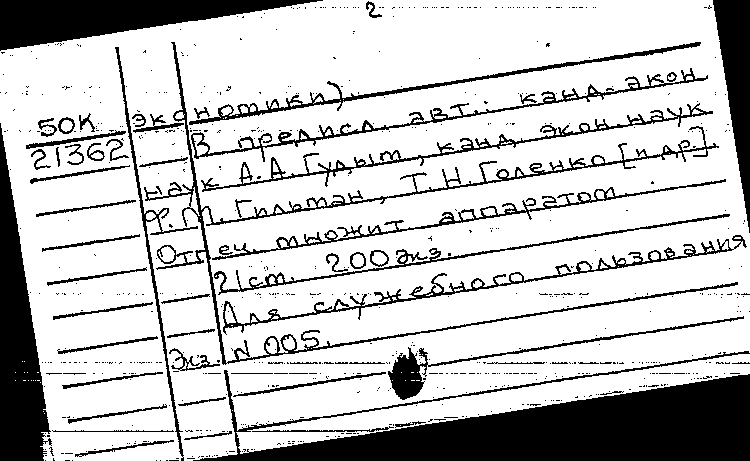 2
50К экономики).
21362 В предисл. авт.: канд. экон
наук А.А. Гудым, канд. экон. наук
Ф.М. Гильман, Т.Н. Голенко [и др.].
Отпеч. множит аппаратом
21см. 200 экз.
Для служебного пользования
Экз. N 005.